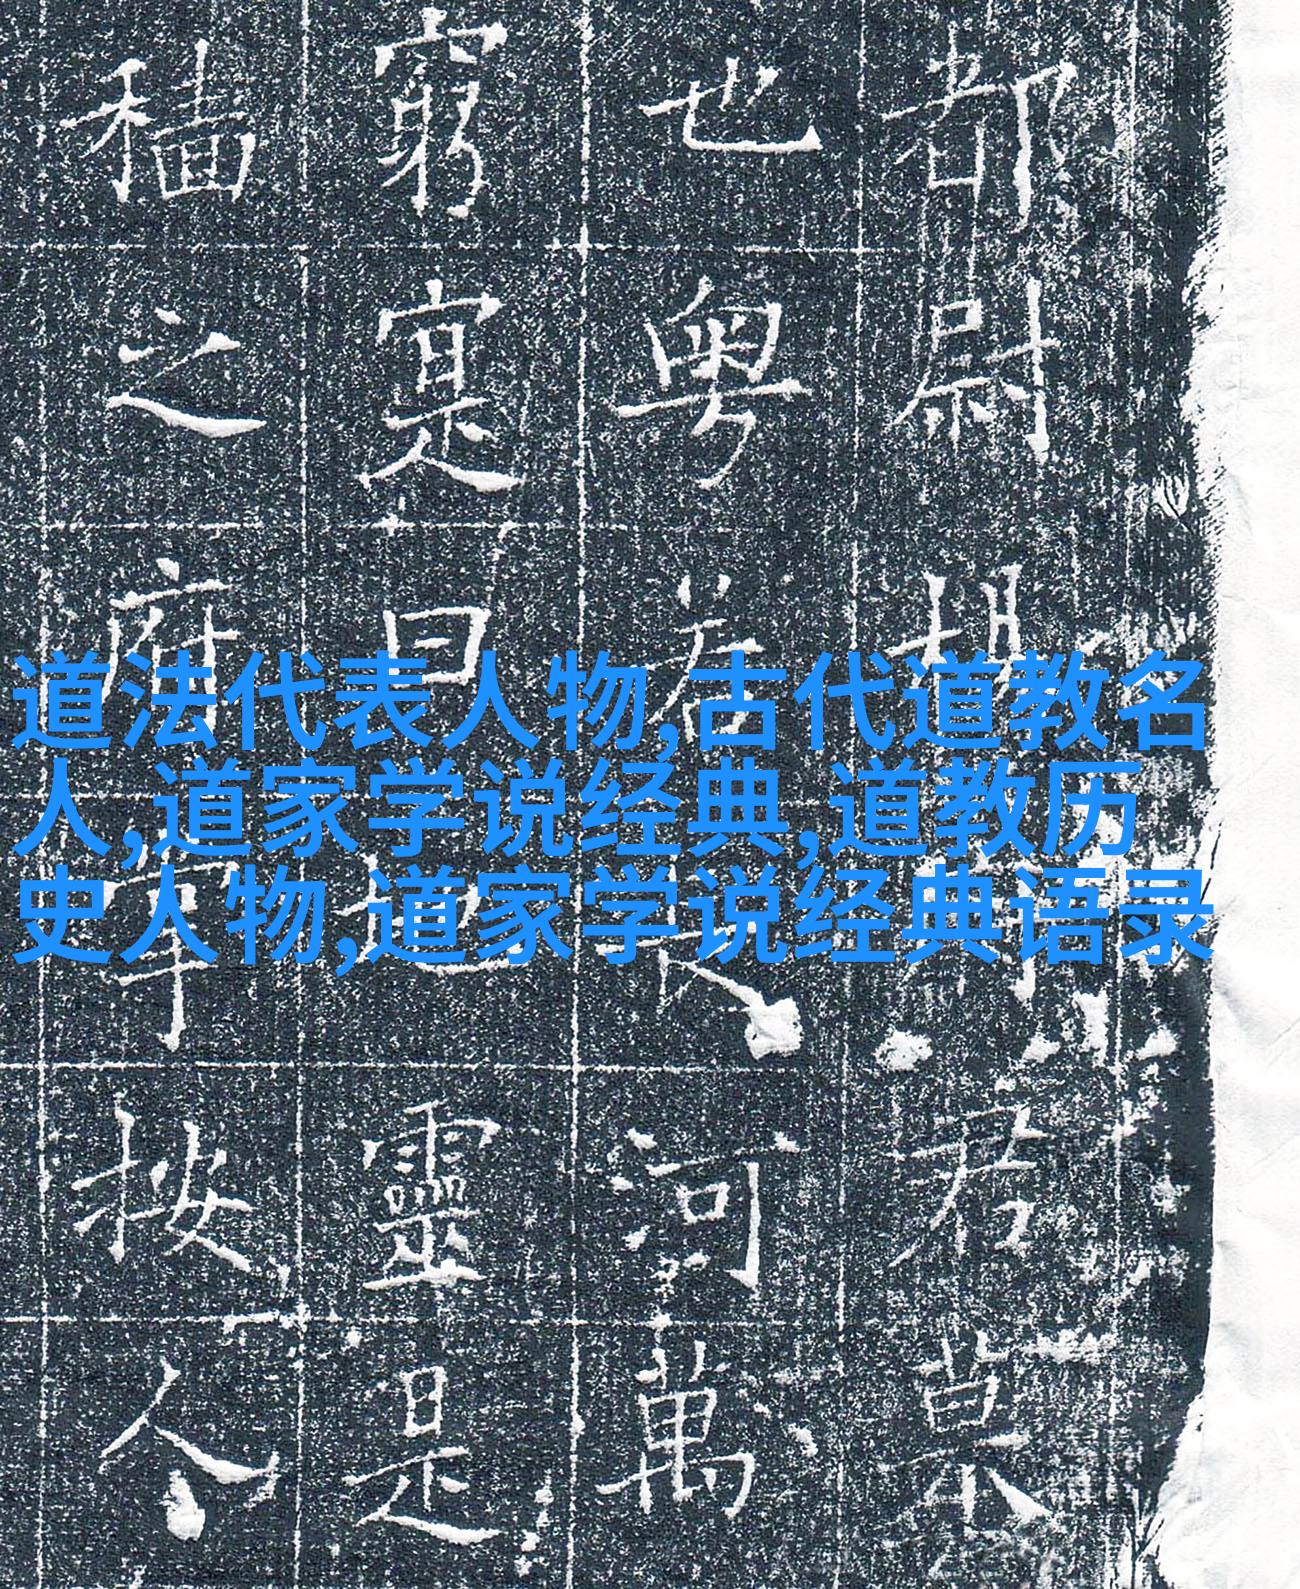 都尉胡
君
也粵若
河萬
窮寔曰
靈是
穑之府
按人
道法代表人物,古代道教名
人,道家学说经典,道教历
史人物,道家学说经典语录